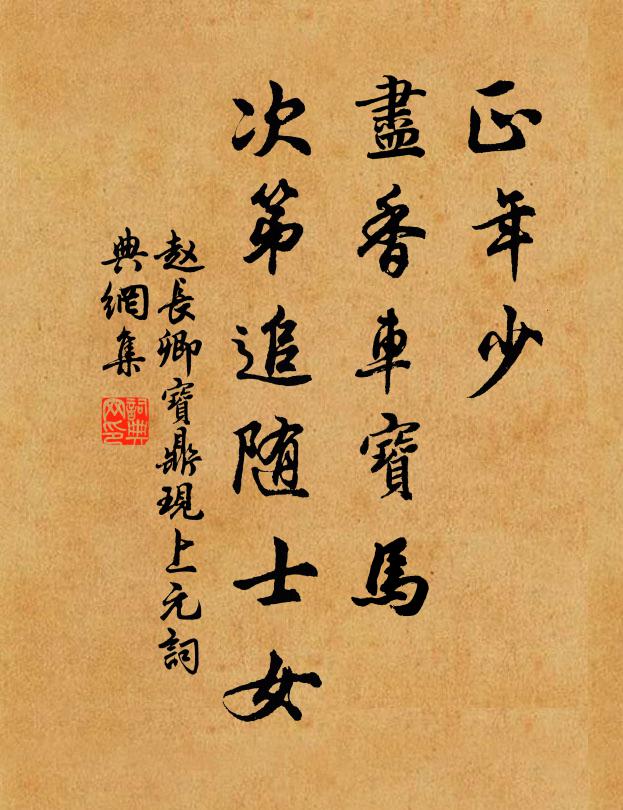 正年少
盡香車寶馬
次第追随士女
赵長卿寶鼎現上元詞
典網集
詞典網印